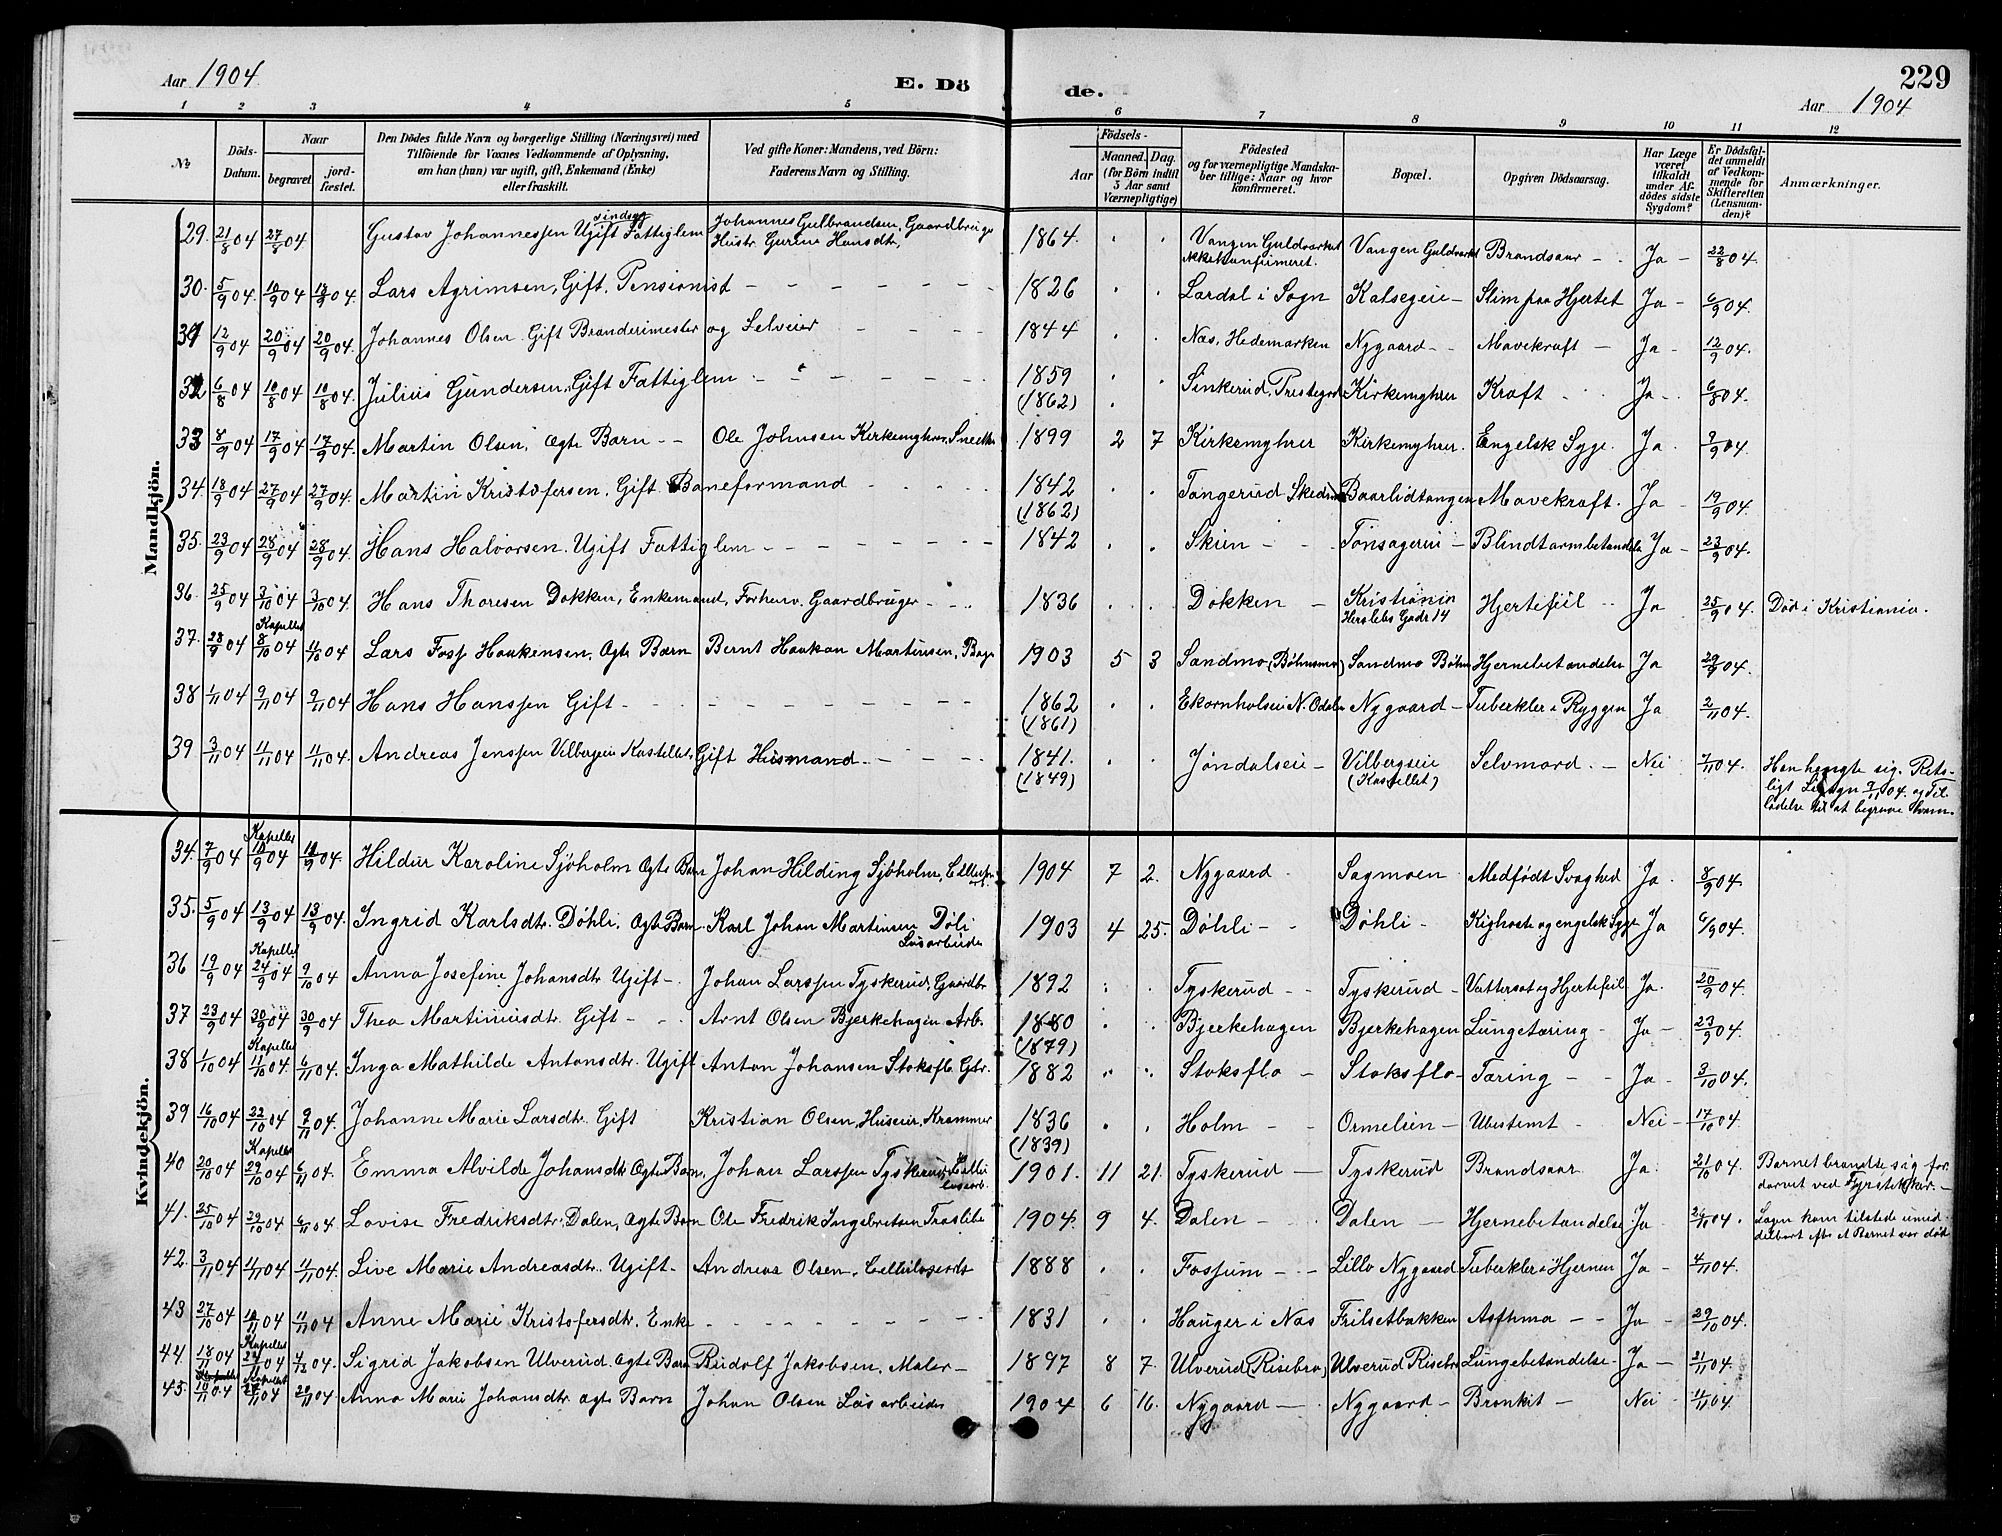 Aar 1904 E. Dö
de. 229
Aar 1904
1 2 3 4 5 6 7 8 9 10 11 12
№ Döds-Datum. Naar begravet. jordfæstet. Den Dödes fulde Navn og borgerlige Stilling (Næringsvei) med Tilföiende for Voxnes Vedkommende af Oplysning, om han (hun) var ugift, gift, Enkemand (Enke) eller fraskilt. Ved gifte Koner: Mandens, ved Börn: Faderens Navn og Stilling. Födsels- Aar Maaned. Dag. (for Börn indtil 3 Aar samt Værnepligtige) Födested og for værnepligtige Mandskaber tillige: Naar og hvor konfirmeret. Bopæl. Opgiven Dödsaarsag. Har Læge været tilkaldt under Afdödes sidste Sygdom? Er Dödsfaldet anmeldt af Vedkommende for Skifteretten (Lensmanden)? Anmærkninger.
Mandkjön.
29. 21/8 04 27/8 04 Gustav Johannessen Ugift sindssyg Fattiglem Johannes Gulbrandsen, Gaardbruger Hustr. Gurine Hansdtr, 1864. Vangen Guldværket Ikke konfirmeret. Vangen Guldværket Brandsaar - Ja - 22/8 04.
30. 5/9 04. 10/9 04 Lars Agrimsen, Gift, Pensionist 1826 Lardal i Sogn Kalsegeie - Slim paa Hjertet Ja - 6/9 04.
31 12/9 04 20/9 04 20/9 04. Johannes Olsen. Gift Brænderimester og Selveier 1844 Næs, Hedemarken Nygaard - Mavekræft - Ja - 12/9 04.
32 6/8 04 10/8 04 10/8 04. Julius Gundersen, Gift Fattiglem 1859 (1862) Sinkerud, Prestegrd Kirkemyhrer Kræft Ja - 6/8 04.
33 8/9 04 17/9 04 17/9 04. Martin Olsen, Ægte Barn - - Ole Johnsen Kirkemyhren, Snedker 1899 2 7 Kirkemyhrer Kirkemyhrer. Engelsk Syge. Ja 9/9 04.
34. 18/9 04 27/9 04 27/9 04. Martin Kristofersen. Gift Baneformand 1842 (1862) Tangerud Skedsmo Baarlidtangen Mavekræft. Ja 19/9 04.
35. 23/9 04 28/9 04 28/9 04. Hans Halvorsen. Ugift Fattiglem 1842 Skien - Tonsagereie - Blindtarmbetændelse Ja - 23/9 04.
36. 25/9 04 3/10 04 3/10 04. Hans Thoresen Dokken, Enkemand, Forhenv. Gaardbruger 1836 Dokken - Kristiania Herslebs Gade 14 Hjertefeil - Ja 25/9 04. Död i Kristiania.
37. 28/9 04 Kapellet 8/10 04 11/10 04. Lars Foss Haakensen, Ægte Barn Bernt Haakon Martinsen, Bage 1903 5 3 Sandmo (Böhnsmo) Sandmo Böhn Hjernebetændelse Ja 29/9 04.
38 1/11 04 9/11 04 9/11 04. Hans Hanssen Gift 1862 (1861) Ekornholseie N. Odalen Nygaard - Tuberkler i Ryggen Ja 2/11 04.
39 3/11 04 11/11 04 11/11 04. Andreas Jenssen Vilbergeie Kastellet, Gift Husmand. 1841. (1849) Jöndalseie - Vilbergseie (Kastellet) Selvmord. - Nei 7/11 04. Han hængte sig. Retsligt Ligsyn 7/11 04. og Tilladelse til at begrave ham.
Kvindekjön.
34. 7/9 04 Kapellet 10/9 04 04. Hildur Karoline Sjöholm Ægte Barn Johan Hilding Sjöholm, Cellulosearb. 1904 7 2. Nygaard Sagmoen Medfödt Svaghed Ja. 8/9 04.
35. 5/9 04 13/9 04 13/9 04. Ingrid Karlsdtr. Döhli. Ægte Barn Karl Johan Martinsen Döli Lösarbeider 1903 4 25. Döhli - Döhli - Kighoste og engelsk Syge Ja 6/9 04.
36 19/9 04 Kapellet 24/9 04 9/10 04 Anna Josefine Johansdtr Ugift - Johan Larssen Tyskerud, Gaardbr 1892 Tyskerud - Tyskerud - Vattersot og Hjertefeil Ja. 20/9 04.
37 23/9 04 30/9 04 30/9 04 Thea Martiniusdtr. Gift - Arnt Olsen Bjerkehagen Arb. 1880 (1879) Bjerkehagen Bjerkehagen Lungetæring - Ja - 23/9 04.
38 1/10 04 Kapellet 11/10 04 6/11 04. Inga Mathilde Antonsdtr. Ugift Anton Johansen Stoksflo Gbr. 1882 Stoksflo - Stoksflo - Tæring - Ja - 3/10 04.
39 16/10 04 22/10 04 9/11 04. Johanne Marie Larsdtr. Gift Kristian Olsen, Huseier, Kræmmer 1836 (1839) Holm - Ormelien - Ubestemt - Nei - 17/10 04.
40 20/10 04 Kapellet 29/10 04 6/11 04. Emma Alvilde Johansdtr Ægte Barn, Johan Larssen Tyskerud, 1901. 11 21. Tyskerud - Tyskerud Brandsaar Ja. 21/10 04. Barnet brændte sig fordærvet ved Fyrstikker. -
41. 25/10 04 29/10 04 6/11 04. Lovise Fredriksdtr, Dalen, Ægte Barn Ole Fredrik Ingebretsen Træsliber 1904. 9 4. Dalen - Dalen - Hjernebetændelse Ja - 26/10 04. Lægen kom tilstede umiddelbart efter at Barnet var död
42. 3/11 04 11/11 04 11/11 04. Live Marie Andreasdtr. Ugift - Andreas Olsen, Cellulosearb 1888 Fossum - Lille Nygaard Tuberkler i Hjernen Ja - 4/11 04.
43 27/10 04 10/11 04 11/11 04 Anne Marie Kristofersdtr. Enke 1831 Hauger i Næs Frilsetbakken Asthma - Ja - 29/10 04.
44. 18/11 04 Kapellet 04 4/12 04. Sigrid Jakobsen Ulverud. Ægte Barn Rudolf Jakobsen, Maler - 1897 8 7. Ulverud (Risebro) Ulverud Risebro Lungebetændelse. Ja - 21/11 04.
45. 10/11 04 Kapellet 04 20/11 04. Anna Marie Johansdtr. Ægte Barn Johan Olsen Lösarbeider 1904 6 16. Nygaard - Nygaard - Bronkit - Nei - 11/11 04.